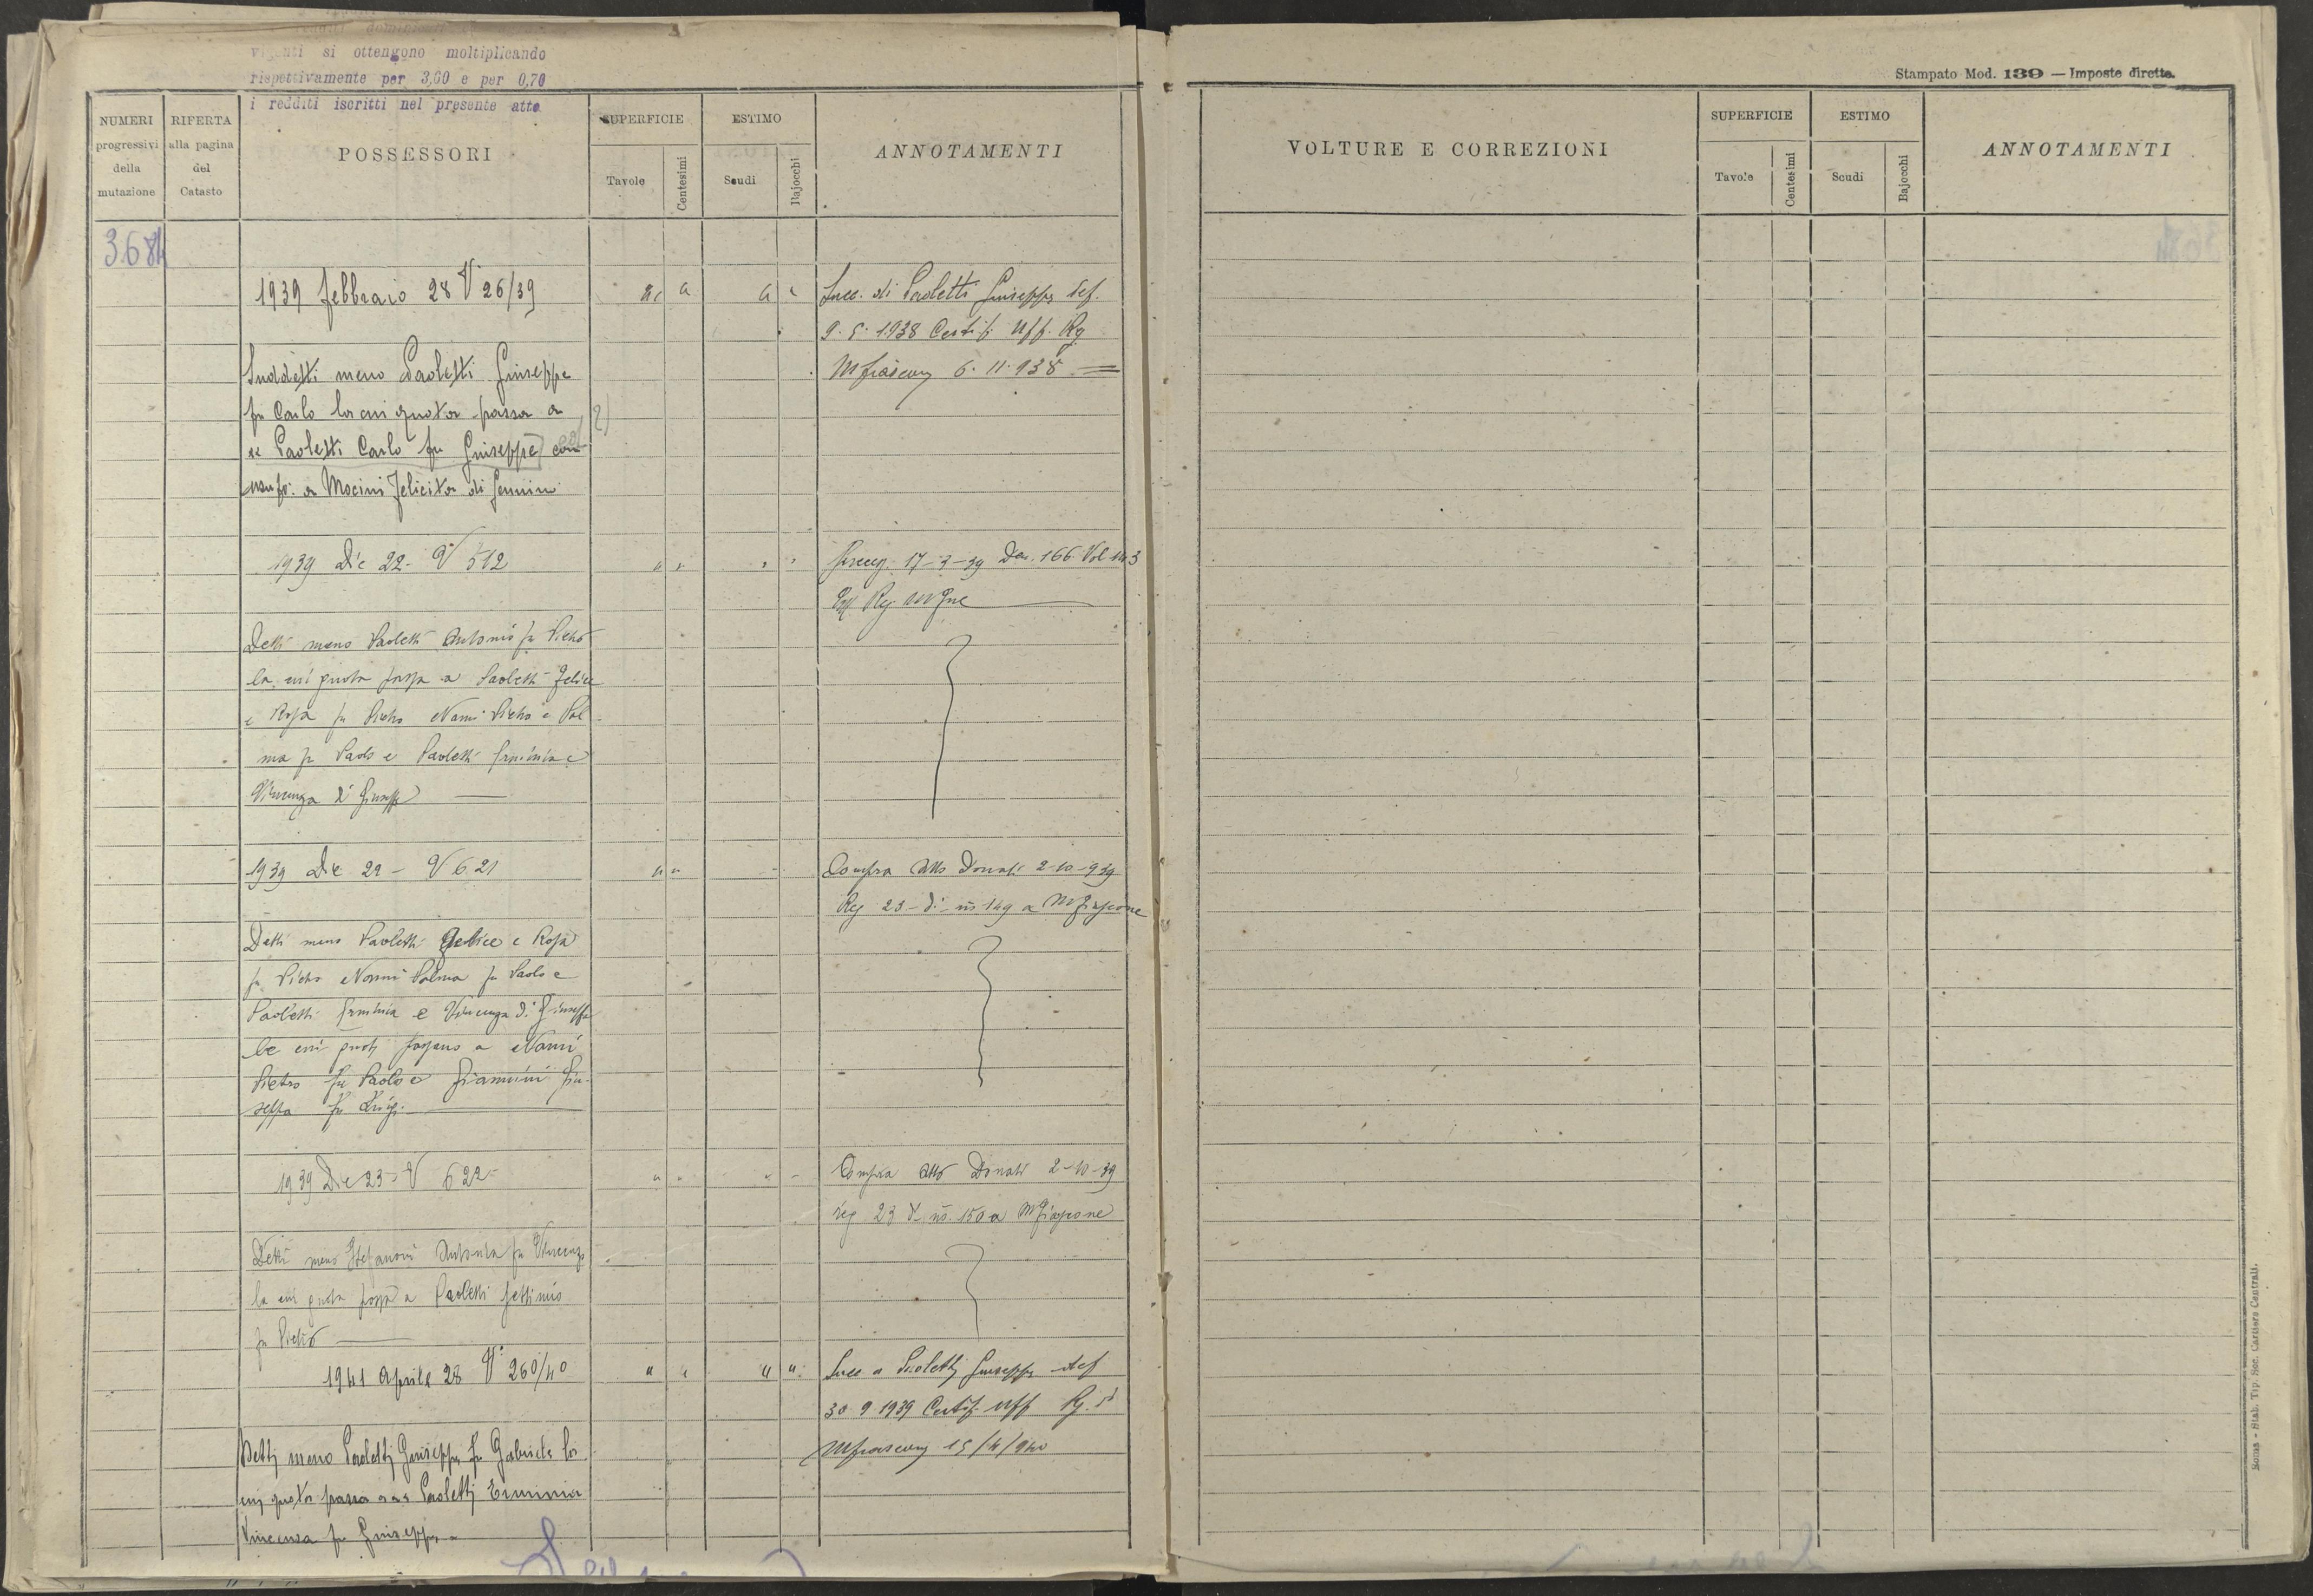 vigenti si ottengono moltiplicando
rispettivamente per 3,60 e per 0,70
i redditi iscritti nel presente atto
NUMERI progressivi della mutazione
RIFERTA alla pagina del Catasto
POSSESSORI
SUPERFICIE
Tavole
Centesimi
ESTIMO
Scudi
Bajocchi
ANNOTAMENTI
3684
1939 febbraio 28 V 26/39
Succ. di Paoletti Giuseppe def.
9. 5. 1938 Certif. Uff. Rg
Mfiascon 6. 11. 938
Suddetti meno Paoletti Giuseppe
fu Carlo la cui quota passa a
Paoletti Carlo fu Giuseppe con
usufr. a Mocini Felicita di
1939 Dic 22 - V 512
Success. 17-3-39 Den. 166 Vol 143
Uff Reg
Detti meno Paoletti Antonio fu Pietro
la cui quota passa a Paoletti Felice
e Rosa fu Pietro Nami Pietro e Pal
ma fu Paolo e Paoletti Erminia e
Vincenza di Giuseppe
1939 Dic 22 - V 621
Compra Atto Donati 2-10-939
Reg 23 - di - n 149 a Mfiascone
Detti meno Paoletti Felice e Rosa
fu Pietro Nanni Palma fu Paolo e
Paoletti Erminia e Vincenza di Giuseppe
le cui quote passano a Nanni
Pietro fu Paolo e Giannini Giu-
seppa fu Luigi
1939 Dic 23 - V 622 -
Compra atto Donati 2-10-39
reg 23 n. 150 a Mfiascone
Detti meno Stefanoni Antonia fu Vincenzo
la cui quota passa a Paoletti Settimio
fu Pietro
1941 Aprile 28 V 260/40
Succ a Paoletti Giuseppe def
30 9 1939 Certif. Uff Rg. di
Mfiascon 15/4/940
Detti meno Paoletti Giuseppe fu Gabriele la
cui quota passa a Paoletti Erminia
Vincenza fu Giuseppe
Stampato Mod. 139 — Imposte dirette.
VOLTURE E CORREZIONI
SUPERFICIE
Tavole
Centesimi
ESTIMO
Scudi
Bajocchi
ANNOTAMENTI
Roma - Stab. Tip. Soc. Cartiere Centrali.